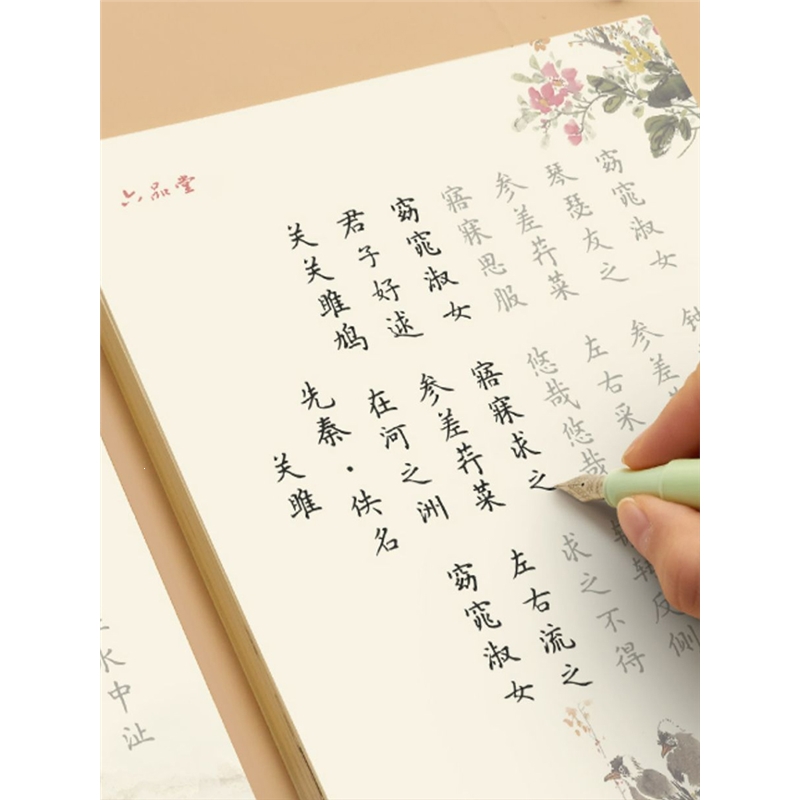 六品堂
关雎
先秦·佚名
关关雎鸠
在河之洲
窈窕淑女
君子好逑
参差荇菜
左右流之
窈窕淑女
寤寐求之
求之不得
寤寐思服
悠哉悠哉
转反侧
参差荇菜
左右采
琴瑟友之
参差
窈窕淑女
钟
水中沚